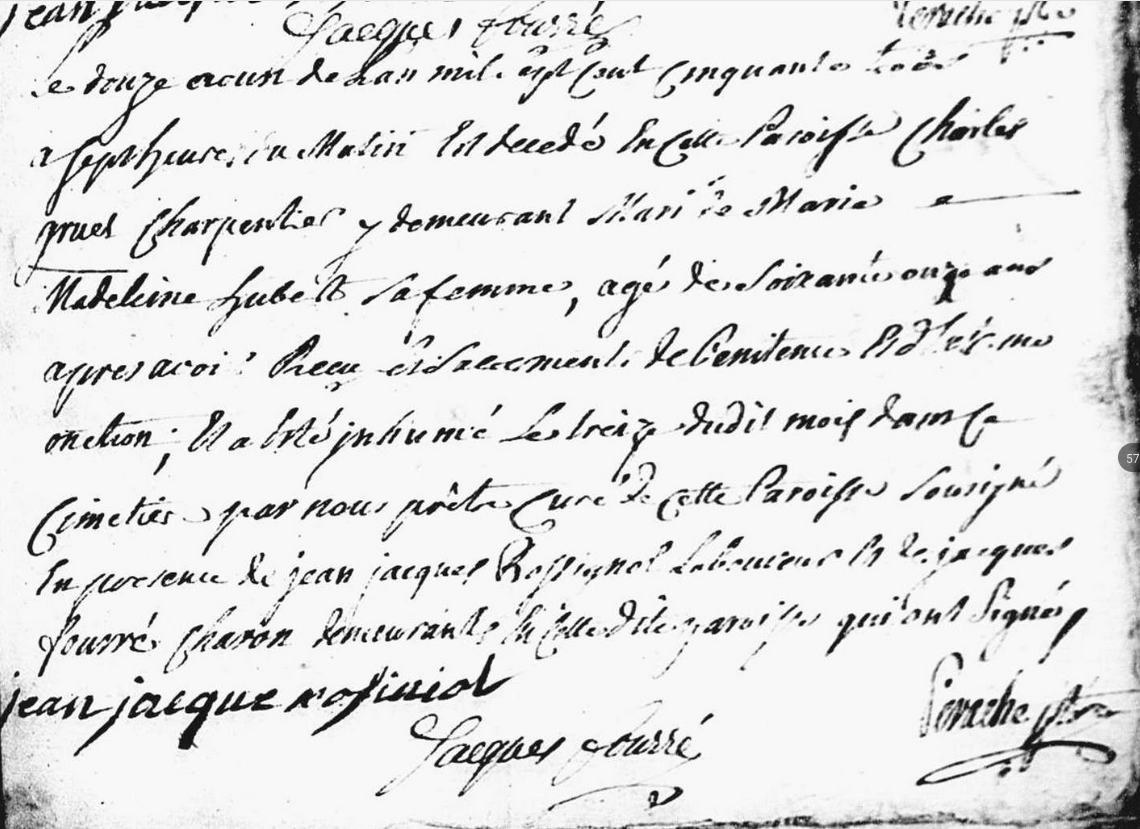 jean
Jacques fourré
le douze de Lan mil sept Cent Cinquante trois
a sept heures du Matin Est decedé En Cette Paroisse Charles
gruel Charpentier y demeurant Mari de Marie
Madeleine hubert sa femme, agé de Soixante onze ans
apres avoir Reçu les sacrements de Penitence Et d'extreme
onction, Et a Eté inhumé Le treize dudit mois dans Ce
Cimetiere par nous prêtre Curé de Cette Paroisse Soussigné
En presence de jean jacques Rossignol Laboureur Et de jacques
fourré Charon demeurants En Cette dite paroisse qui ont Signés,
jean jacque rosiniol
Jacques fourré
57